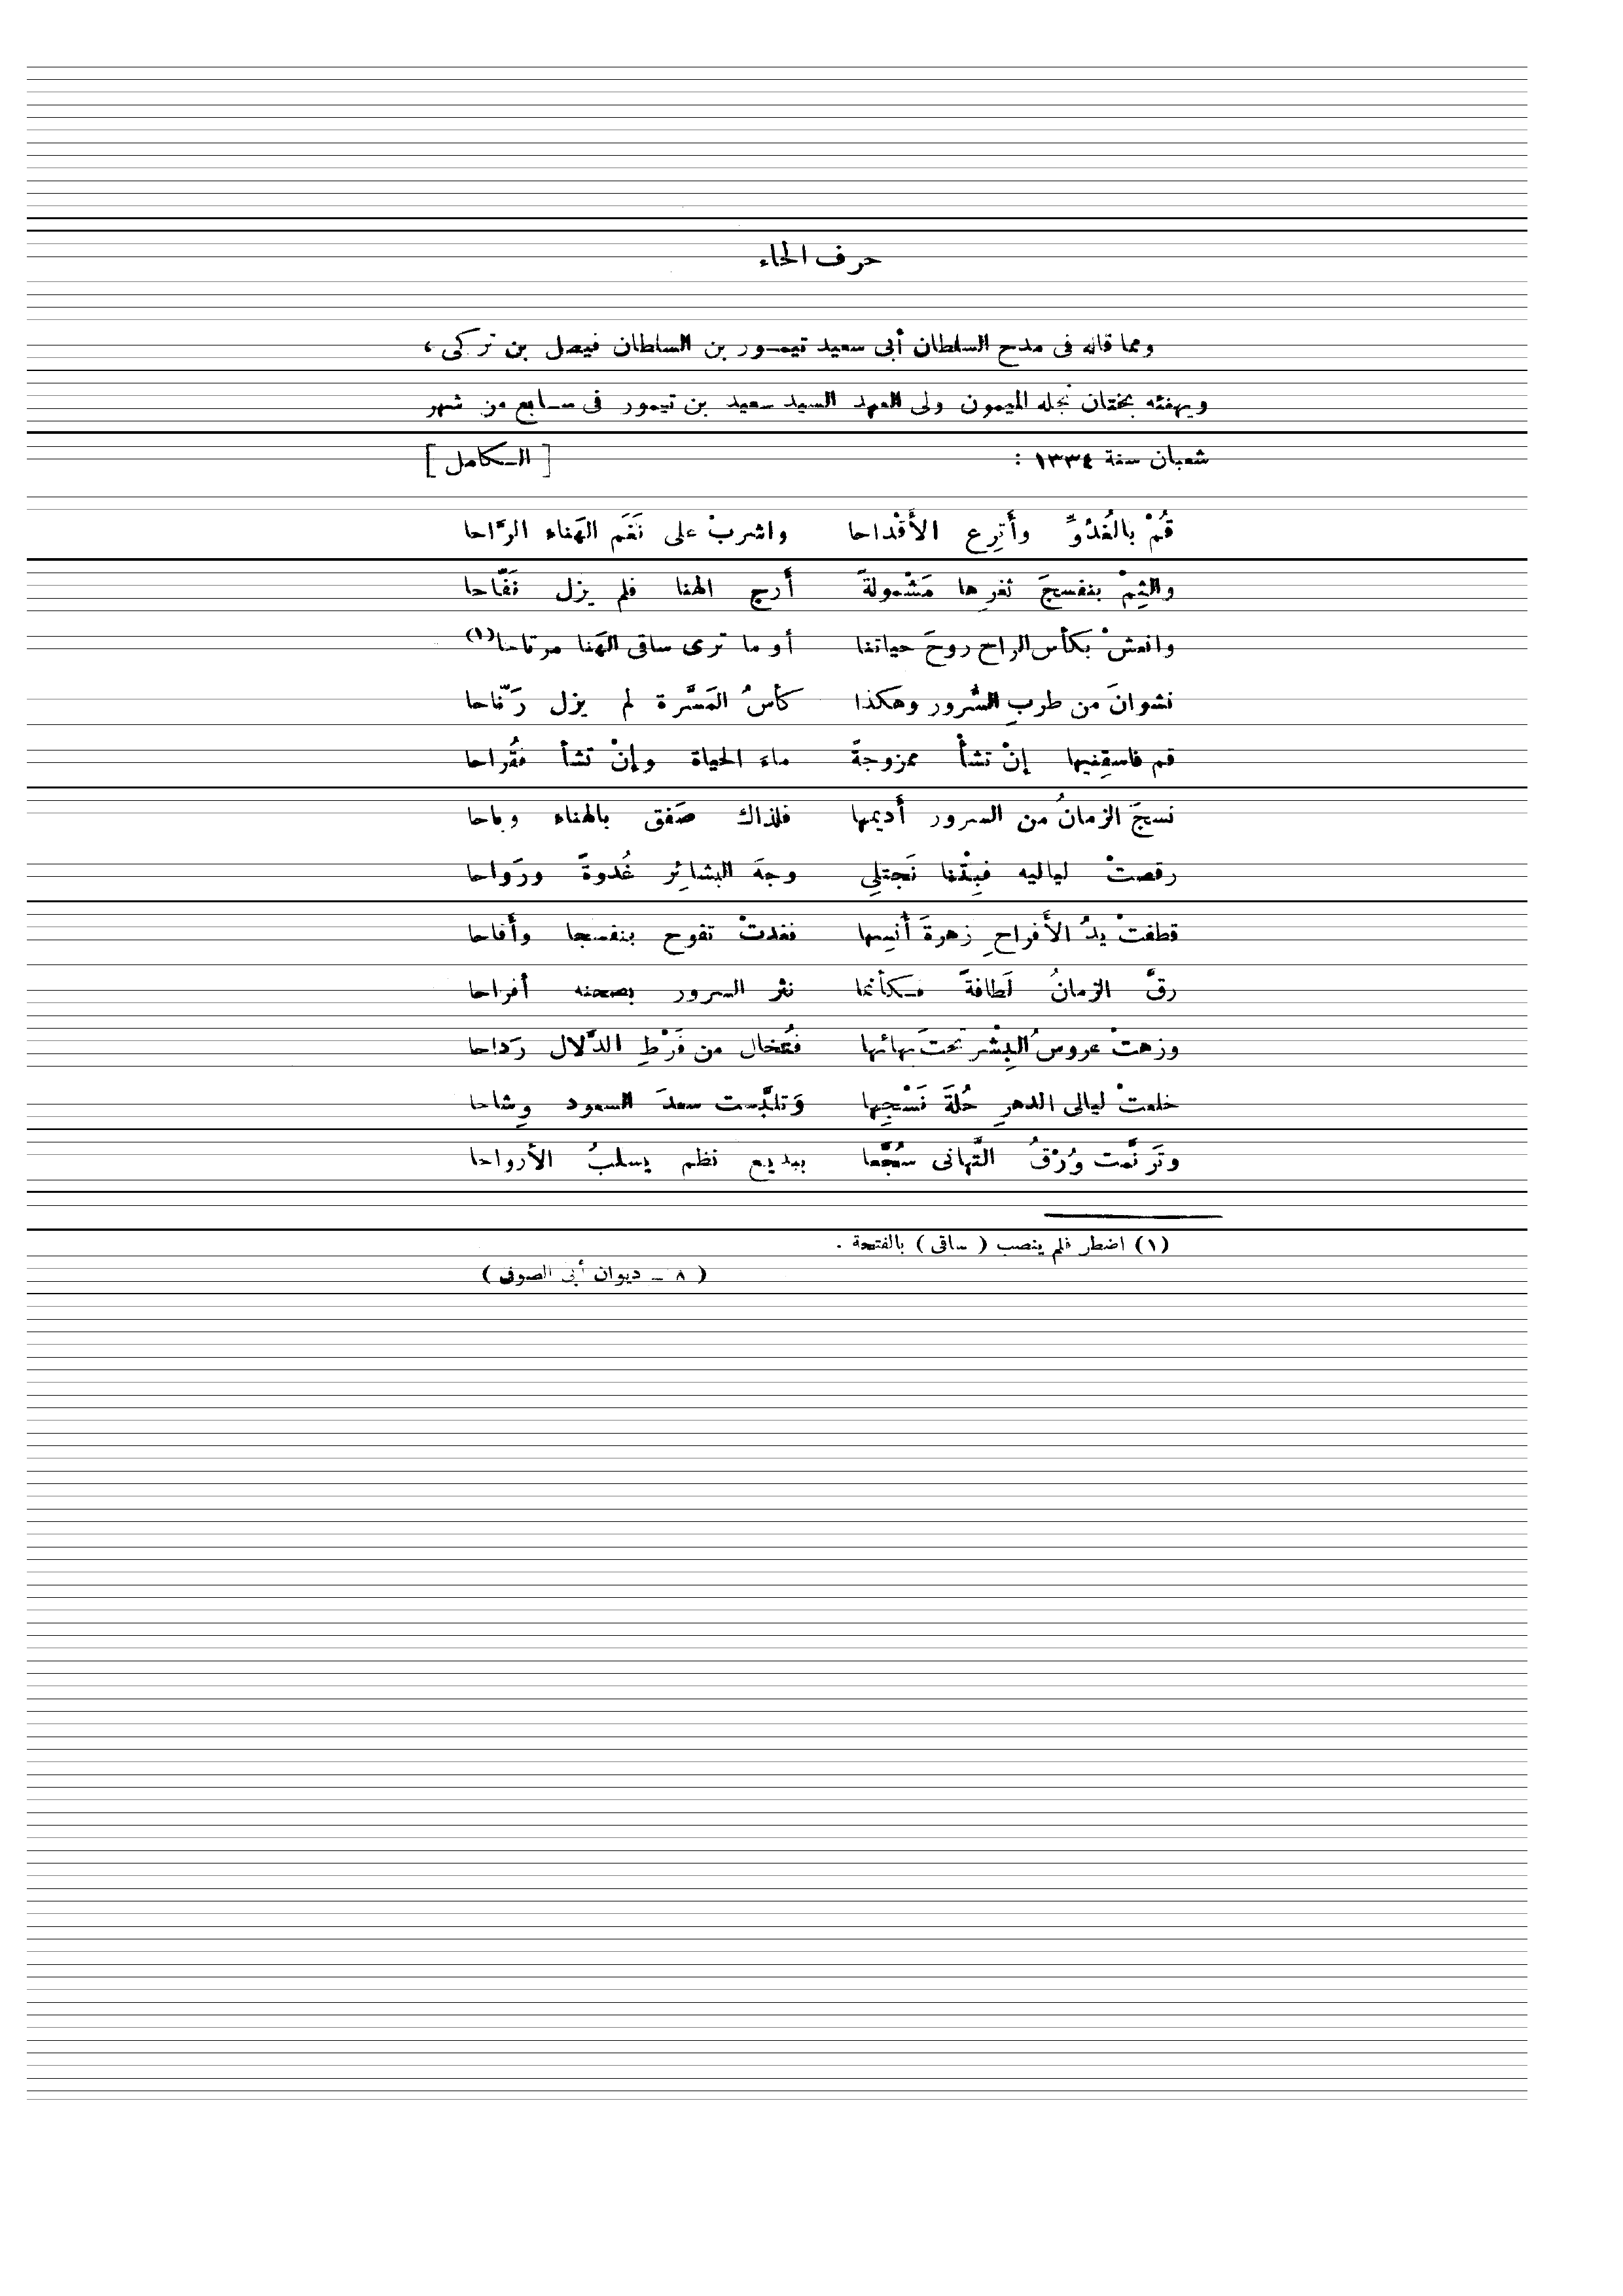 حرف الحاء
ومما قاله فى مدح السلطان أبى سعيد تيمـور بن السلطان فيصل بن تركى ،
ويهنئه بختان نجله الميمون ولى العهد السيد سعيد بن تيمور فى سـابع من شهر
شعبان سنة ١٣٣٤ : [ الـكامل ]
قُمْ بالغُدُوِّ وأَترِع الأَقْداحا واشربْ على نَغَم الهَناء الرَّاحا
والثِمْ بنفسجَ ثغرِها مَشْمولةً أَرج الهنا فلم يزل نَفَّاحا
وانعشْ بكأس الراح روحَ حياتنا أو ما ترى ساقى الهَنا مرتاحا(١)
نشوانَ من طربِ السُّرور وهكذا كأسُ المَسَّرة لم يزل رَنّاحا
قم فاسقِنيها إنْ تشأْ ممزوجةً ماءَ الحياة وإنْ تشأ فقُراحا
نسجَ الزمانُ من السرور أَديمها فلذاك صَفق بالهناء وباحا
رقصتْ لياليه فبِتْنا نَجتلِى وجهَ البشائِر غُدوةً ورَواحا
قطفتْ يدُ الأَفراحِ زهرةَ أُنسِها فغدتْ تفوح بنفسجا وأَقاحا
رقَّ الزمانُ لَطافةً فـكأنما نثر السرور بصحنه أفراحا
وزهتْ عروسُ البِشْر تحتَ بهائها فتُخال من فَرْطِ الدَّلال رَداحا
خلعتْ ليالى الدهرِ حُلةَ نَسْجِها وَتلبَّست سعدَ السعود وِشاحا
وتَرنَّمت وُرْقُ التَّهانى سُجَّعا ببديع نظم يسلبُ الأرواحا
(١) اضطر فلم ينصب ( ساقى ) بالفتحة .
( ٨ ـ ديوان أبى الصوفى )